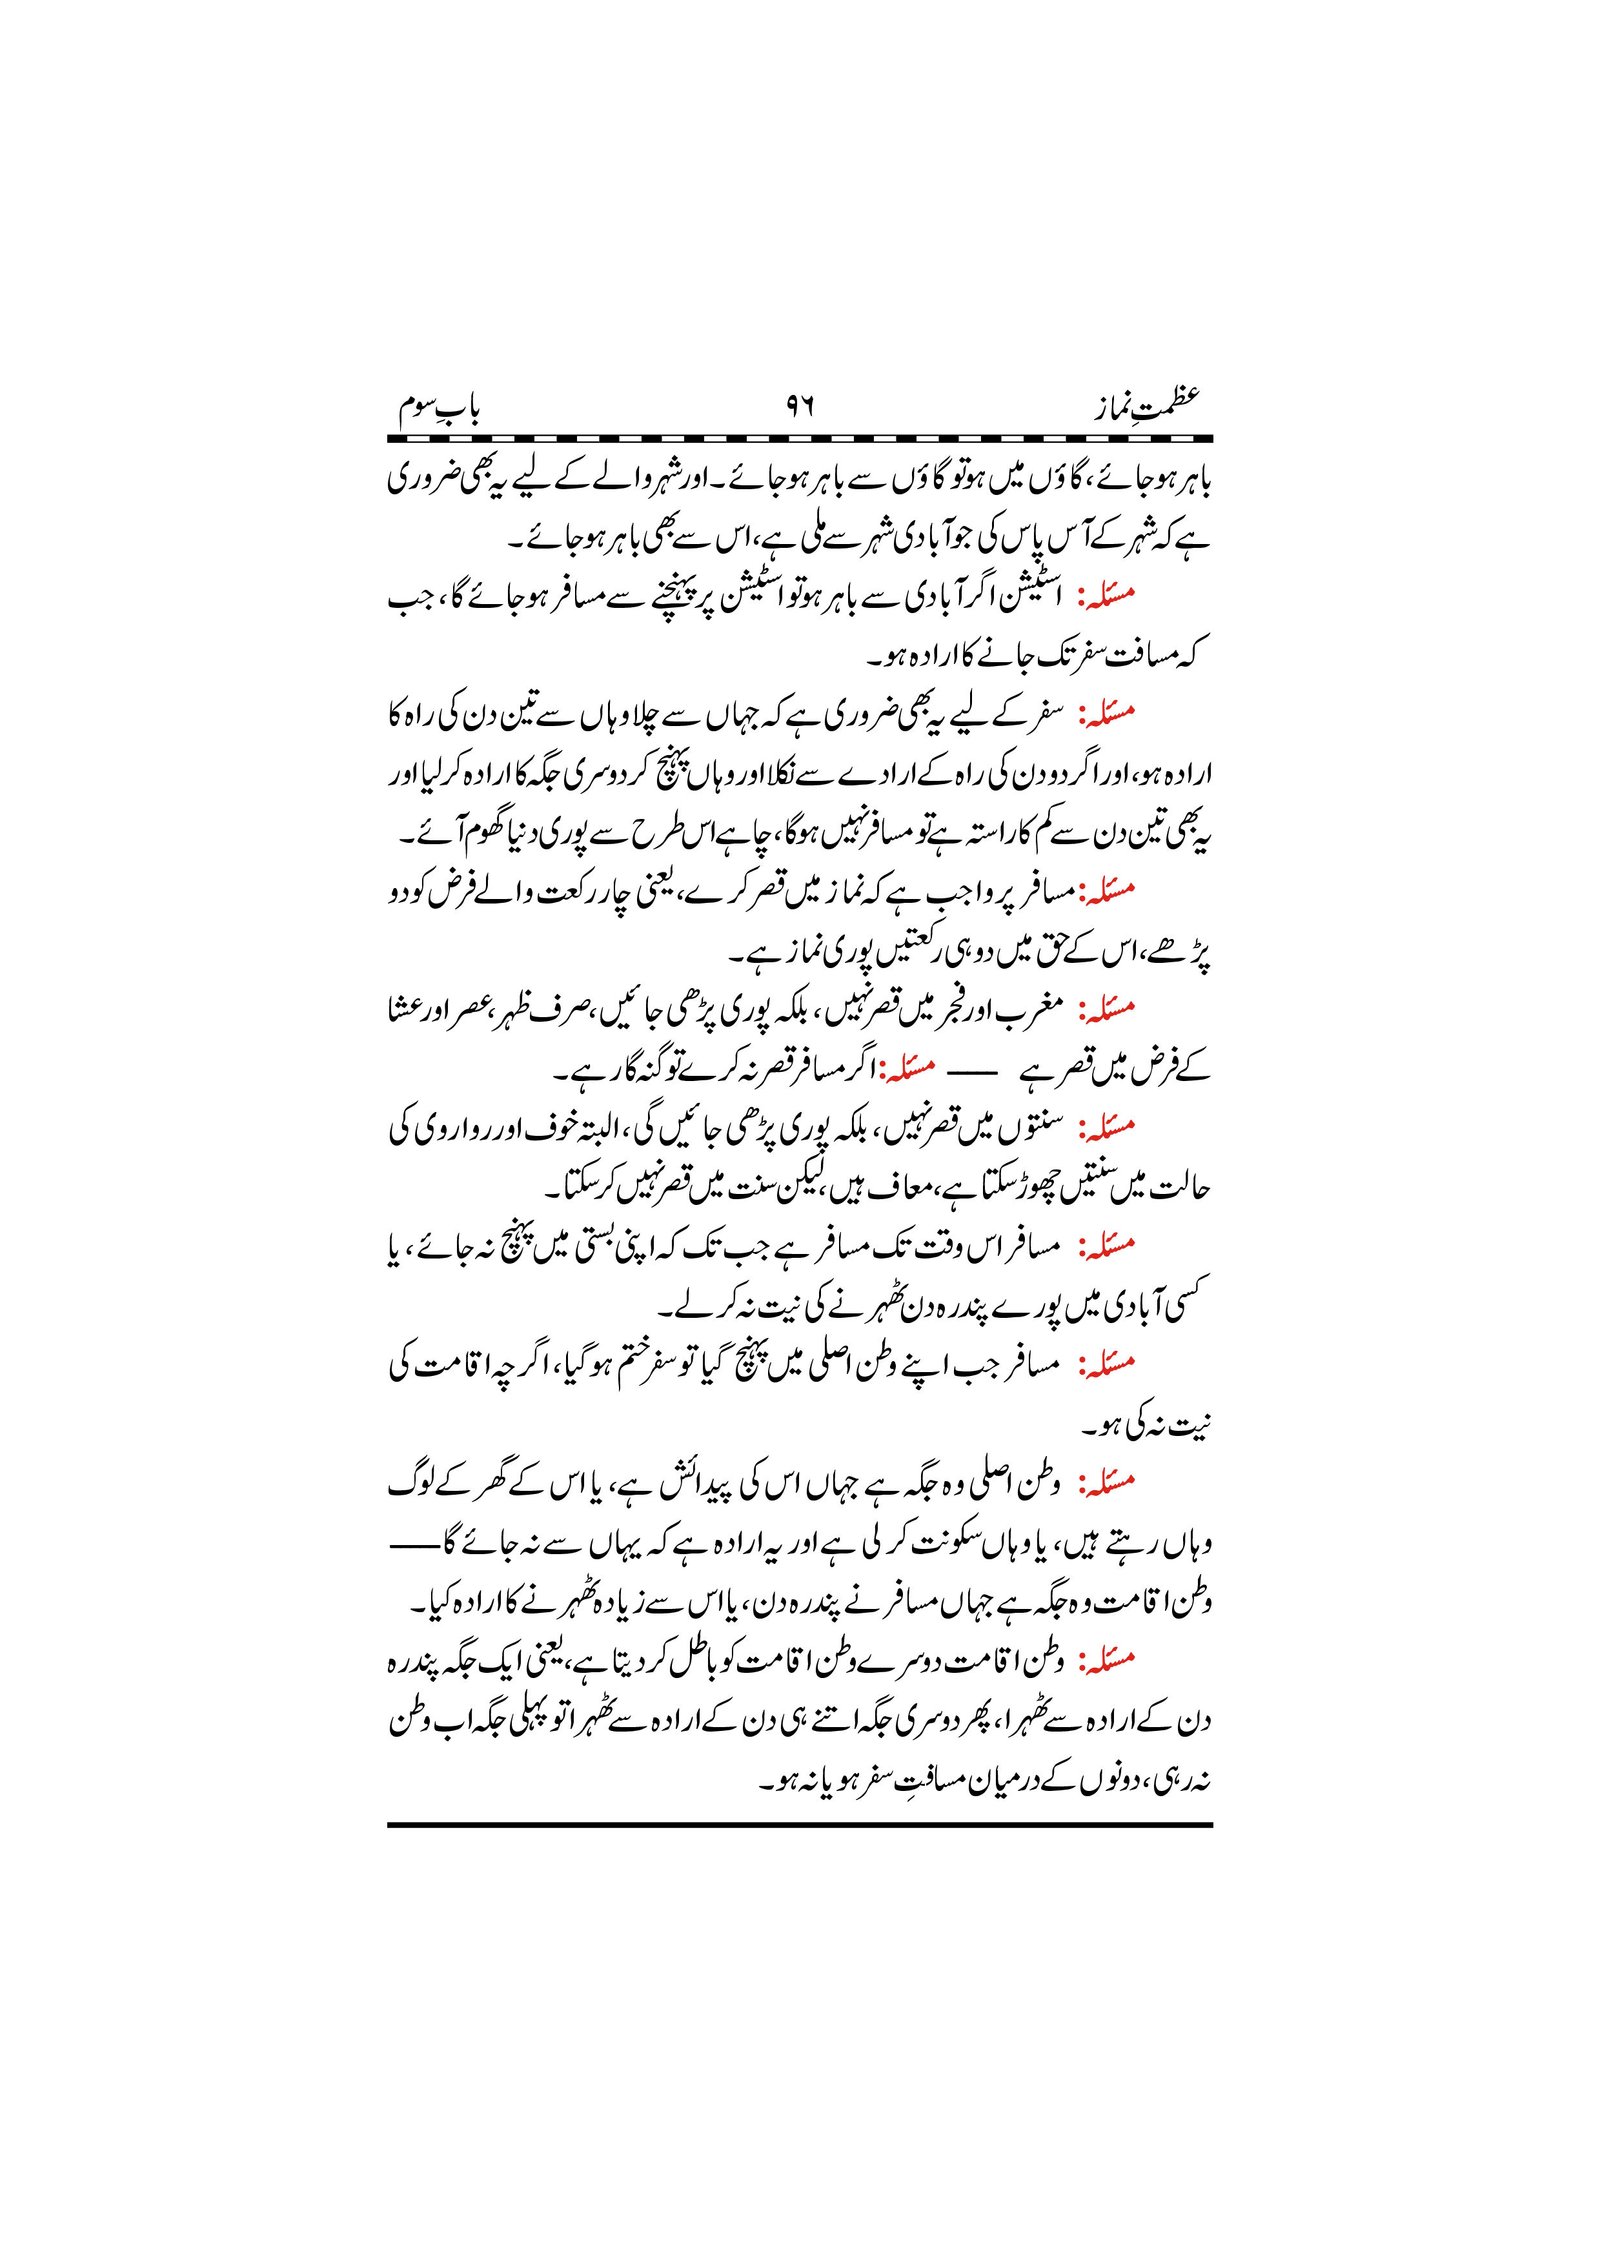 عظمتِ نماز ۹۶ بابِ سوم
باہر ہو جائے، گاؤں میں ہو تو گاؤں سے باہر ہو جائے۔ اور شہر والے کے لیے یہ بھی ضروری
ہے کہ شہر کے آس پاس کی جو آبادی شہر سے ملی ہے، اس سے بھی باہر ہو جائے۔
مسئلہ: اسٹیشن اگر آبادی سے باہر ہو تو اسٹیشن پر پہنچنے سے مسافر ہو جائے گا، جب
کہ مسافت سفر تک جانے کا ارادہ ہو۔
مسئلہ: سفر کے لیے یہ بھی ضروری ہے کہ جہاں سے چلا وہاں سے تین دن کی راہ کا
ارادہ ہو، اور اگر دو دن کی راہ کے ارادے سے نکلا اور وہاں پہنچ کر دوسری جگہ کا ارادہ کر لیا اور
یہ بھی تین دن سے کم کا راستہ ہے تو مسافر نہیں ہوگا، چاہے اس طرح سے پوری دنیا گھوم آئے۔
مسئلہ: مسافر پر واجب ہے کہ نماز میں قصر کرے، یعنی چار رکعت والے فرض کو دو
پڑھے، اس کے حق میں دو ہی رکعتیں پوری نماز ہے۔
مسئلہ: مغرب اور فجر میں قصر نہیں، بلکہ پوری پڑھی جائیں، صرف ظہر، عصر اور عشا
کے فرض میں قصر ہے —— مسئلہ: اگر مسافر قصر نہ کرے تو گنہ گار ہے۔
مسئلہ: سنتوں میں قصر نہیں، بلکہ پوری پڑھی جائیں گی، البتہ خوف اور رواروی کی
حالت میں سنتیں چھوڑ سکتا ہے، معاف ہیں، لیکن سنت میں قصر نہیں کر سکتا۔
مسئلہ: مسافر اس وقت تک مسافر ہے جب تک کہ اپنی بستی میں پہنچ نہ جائے، یا
کسی آبادی میں پورے پندرہ دن ٹھہرنے کی نیت نہ کر لے۔
مسئلہ: مسافر جب اپنے وطن اصلی میں پہنچ گیا تو سفر ختم ہو گیا، اگرچہ اقامت کی
نیت نہ کی ہو۔
مسئلہ: وطن اصلی وہ جگہ ہے جہاں اس کی پیدائش ہے، یا اس کے گھر کے لوگ
وہاں رہتے ہیں، یا وہاں سکونت کر لی ہے اور یہ ارادہ ہے کہ یہاں سے نہ جائے گا——
وطن اقامت وہ جگہ ہے جہاں مسافر نے پندرہ دن، یا اس سے زیادہ ٹھہرنے کا ارادہ کیا۔
مسئلہ: وطن اقامت دوسرے وطن اقامت کو باطل کر دیتا ہے، یعنی ایک جگہ پندرہ
دن کے ارادہ سے ٹھہرا، پھر دوسری جگہ اتنے ہی دن کے ارادہ سے ٹھہرا تو پہلی جگہ اب وطن
نہ رہی، دونوں کے درمیان مسافتِ سفر ہو یا نہ ہو۔